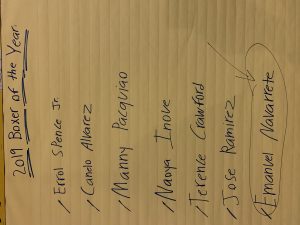 2019 Boxer of the Year
/ Errol Spence Jr.
/ Canelo Alvarez
/ Manny Pacquiao
/ Naoya Inoue
/ Terence Crawford
/ Jose Ramirez
Emanuel Navarrete